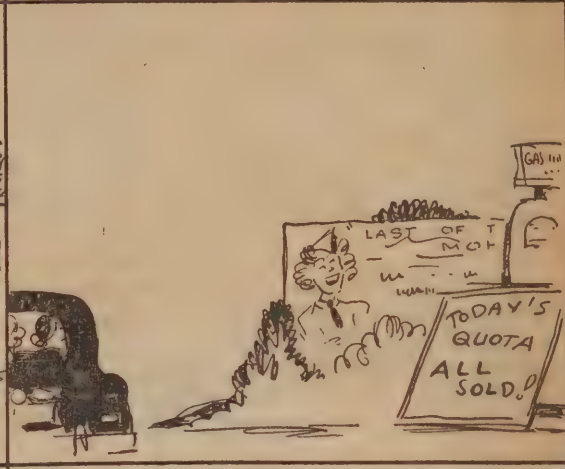 GAS
LAST OF T
MOH
TODAY'S
QUOTA
ALL
SOLD!